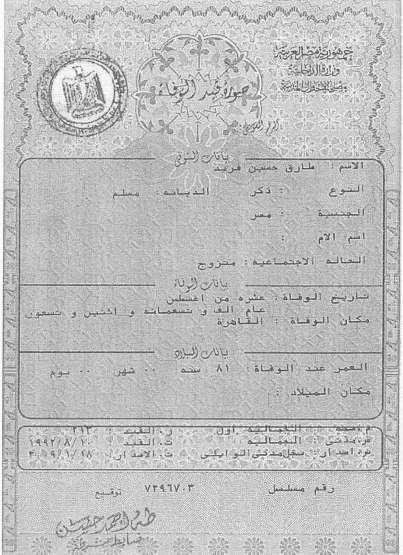 جمهورية مصر العربية
وزارة الداخلية
صورة قيد الوفاة
بيانات المتوفى
الاسم : طارق حسين فريد
النوع : ذكر الديانه : مسلم
الجنسية : مصر
اسم الام :
الحاله الاجتماعيه : متزوج
بيانات الوفاة
تاريخ الوفاة : عشره من اغسطس
عام الف و تسعمائه و اثنين و تسعون
مكان الوفاة : القاهرة
بيانات الميلاد
العمر عند الوفاة : 81 سنه .. شهر .. يوم
مكان الميلاد :
م.صحه : الجماليه اول ر.القيد : ٢١٣
س.مدنى : الجماليه ت.القيد : ١٩٩٢/٨/١٠
س.اصدار : سجل مدنى الوايلى ت.الاصدار : ٢٠٠٩/١/١٨
رقم مسلسل ٧٢٩٦٧٠٣ توقيع